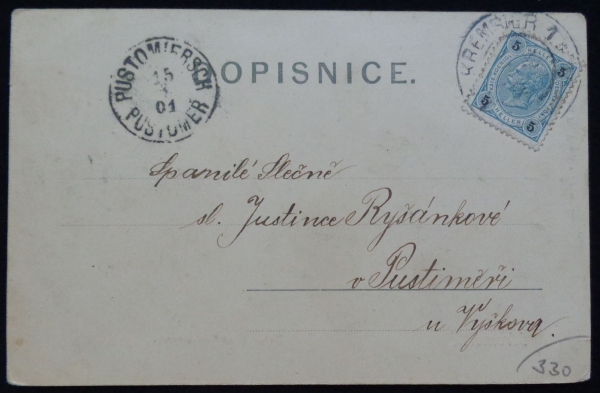 OPISNICE.
PUSTOMIERSCH
15
01
PUSTOMĚR
KREMSIER 1
5 5
5 5
Spanilé Slečně
sl. Justince Ryšánkové
v Pustiměři
u Vyškova.
330